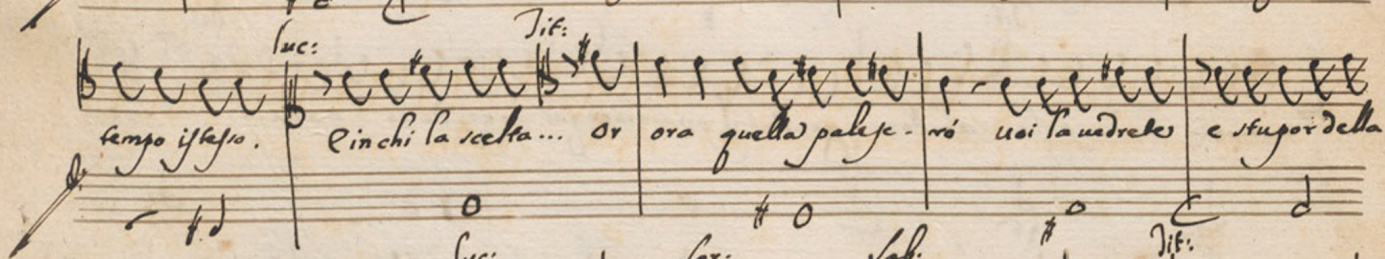 luc: Tit:
tempo istesso. e in chi la scelta... or ora quella palese-rò voi la vedrete e stupor della
Tit: